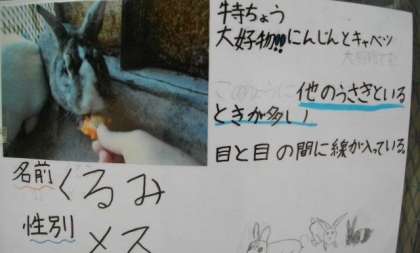 牛寺ちょう
大好物!!にんじんとキャベツ
このように他のうさぎといる
ときが多い
目と目の間に線が入っている。
名前
くるみ
性別
メス